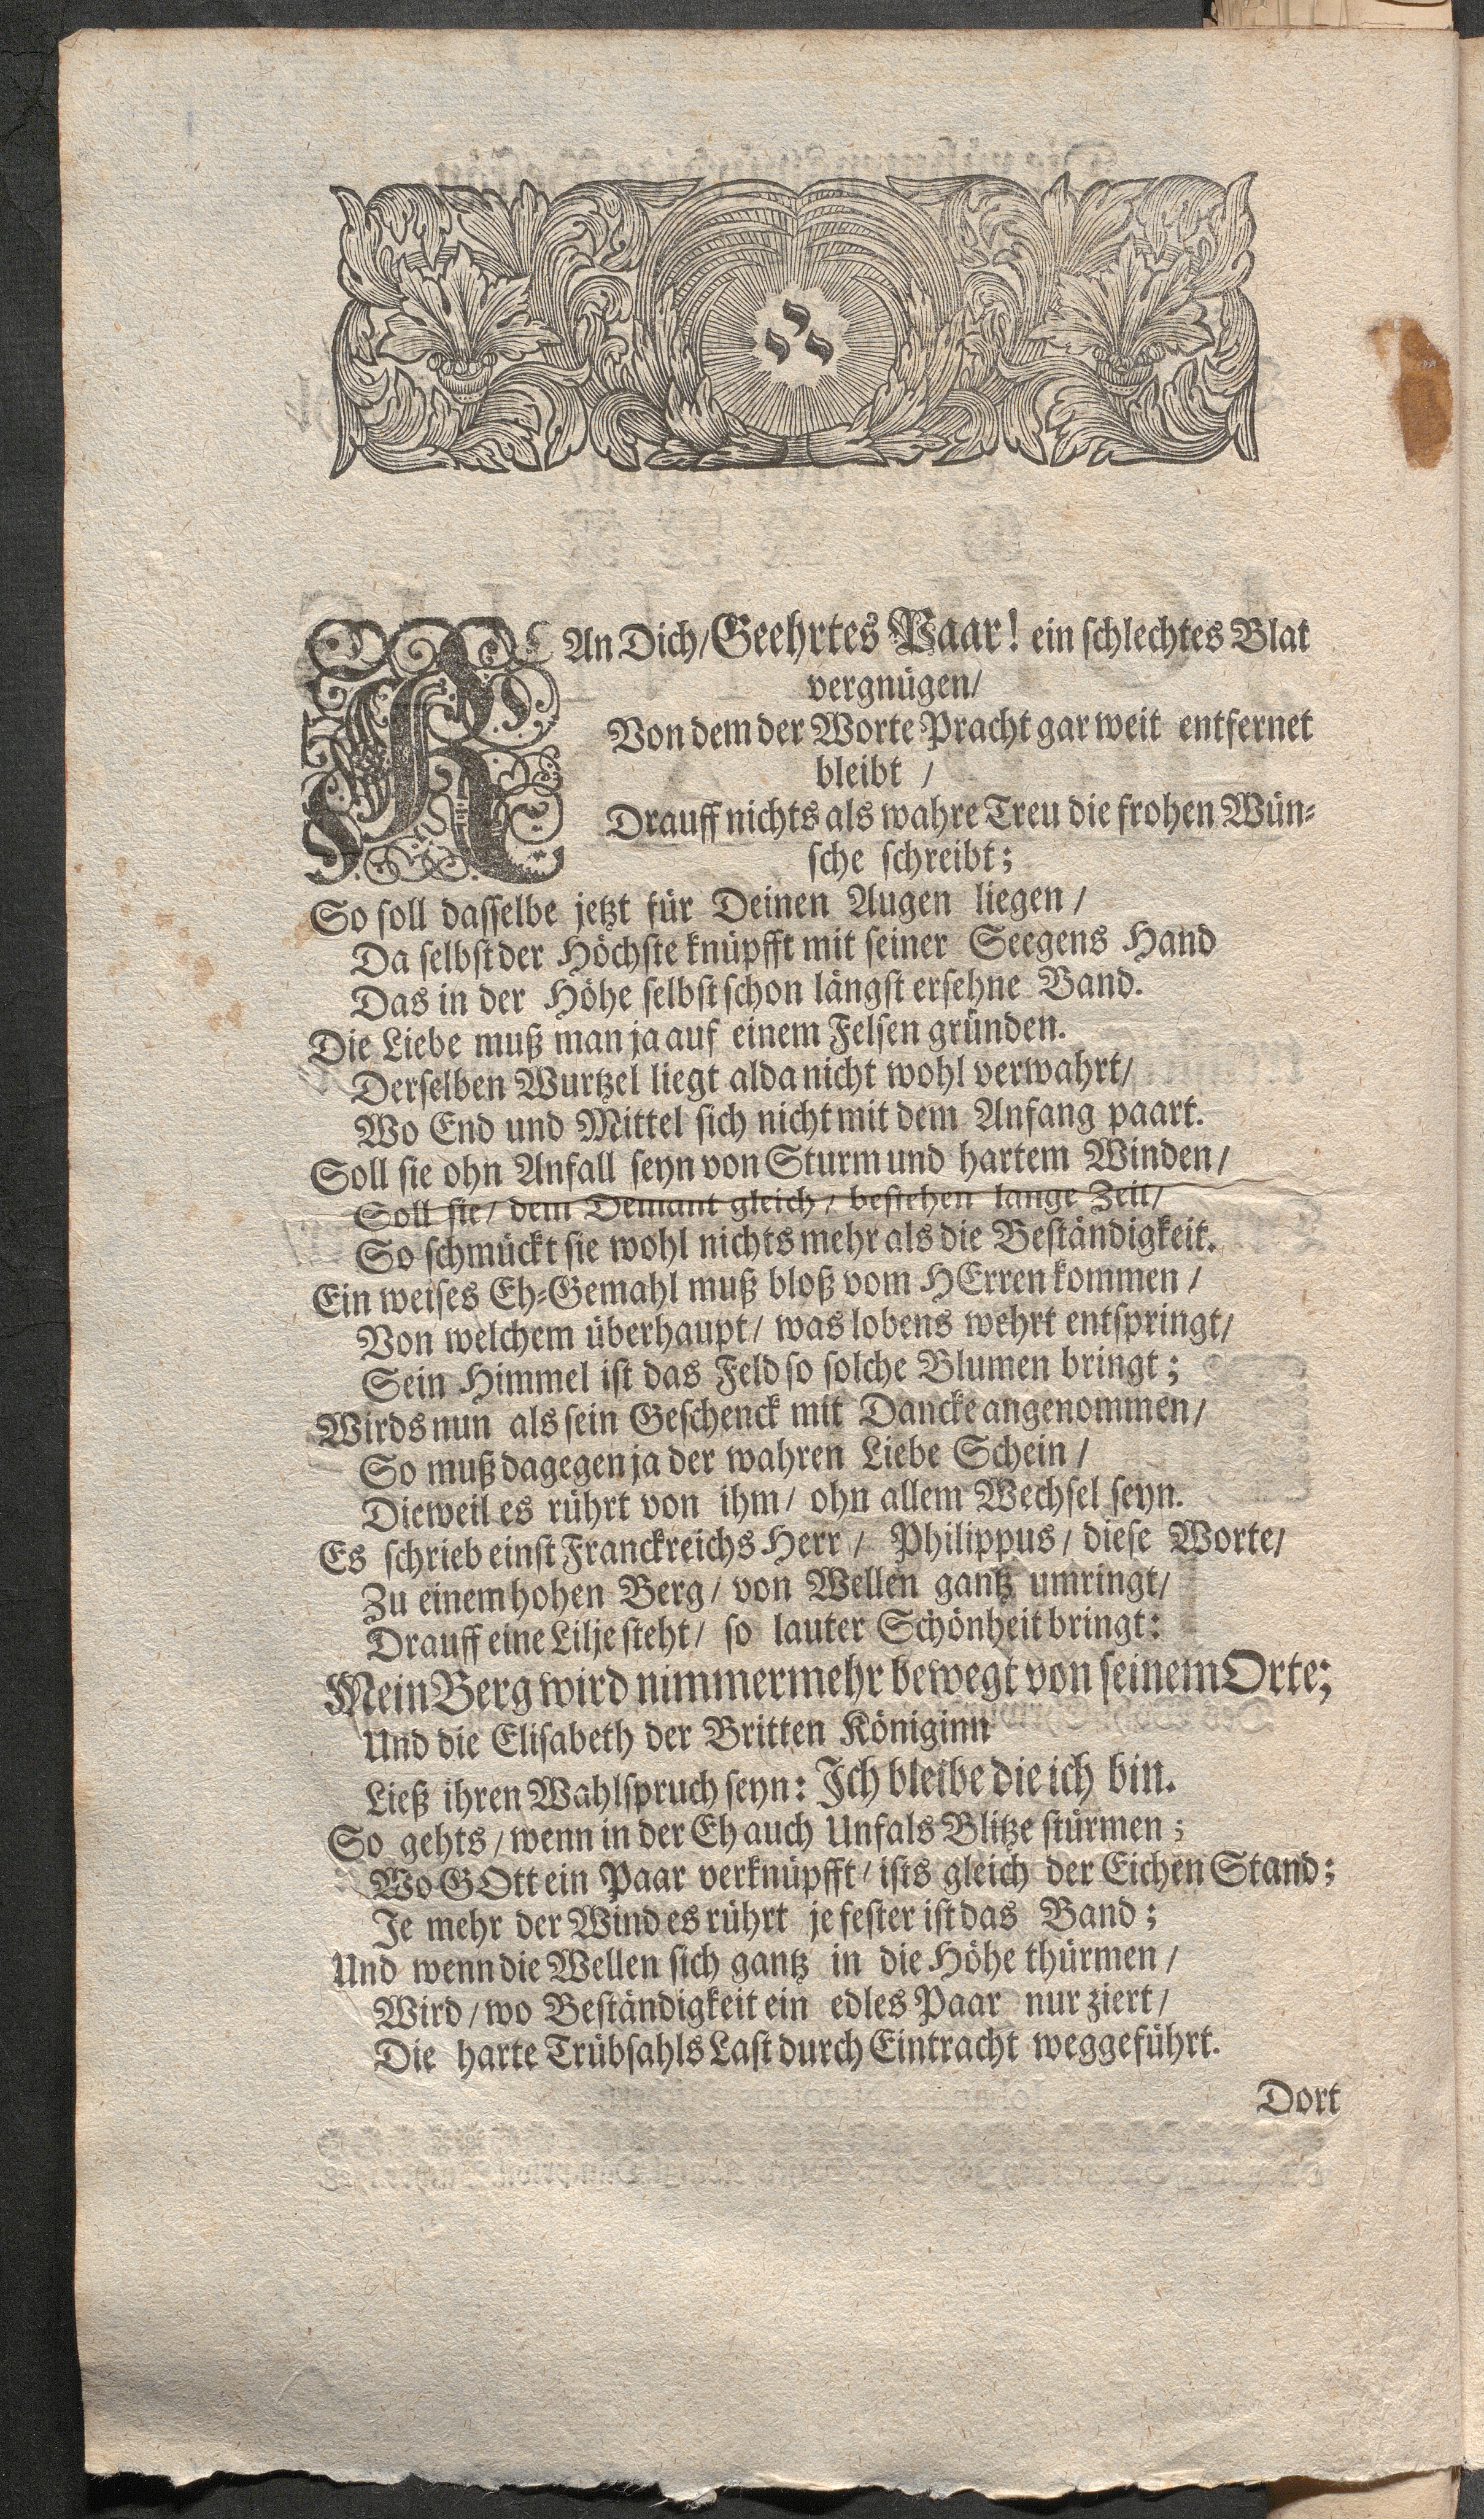 KAn Dich/ Geehrtes Paar! ein schlechtes Blat
vergnügen/
Von dem der Worte Pracht gar weit entfernet
bleibt /
Drauff nichts als wahre Treu die frohen Wün-
sche schreibt;
So soll dasselbe jetzt für Deinen Augen liegen /
Da selbst der Höchste knüpfft mit seiner Seegens Hand
Das in der Höhe selbst schon längst ersehne Band.
Die Liebe muß man ja auf einem Felsen gründen.
Derselben Wurtzel liegt alda nicht wohl verwahrt/
Wo End und Mittel sich nicht mit dem Anfang paart.
Soll sie ohn Anfall seyn von Sturm und hartem Winden/
Soll sie/ dem Demant gleich/ bestehen lange Zeit/
So schmückt sie wohl nichts mehr als die Beständigkeit.
Ein weises Eh-Gemahl muß bloß vom HErren kommen /
Von welchem überhaupt/ was lobens wehrt entspringt/
Sein Himmel ist das Feld so solche Blumen bringt;
Wirds nun als sein Geschenck mit Dancke angenommen/
So muß dagegen ja der wahren Liebe Schein /
Dieweil es rührt von ihm/ ohn allem Wechsel seyn.
Es schrieb einst Franckreichs Herr / Philippus/ diese Worte/
Zu einem hohen Berg/ von Wellen gantz umringt/
Drauff eine Lilje steht/ so lauter Schönheit bringt:
Mein Berg wird nimmermehr bewegt von seinem Orte;
Und die Elisabeth der Britten Königinn
Ließ ihren Wahlspruch seyn: Ich bleibe die ich bin.
So gehts/ wenn in der Eh auch Unfals Blitze stürmen;
Wo GOtt ein Paar verknüpfft/ ists gleich der Eichen Stand;
Je mehr der Wind es rührt je fester ist das Band;
Und wenn die Wellen sich gantz in die Höhe thürmen /
Wird/ wo Beständigkeit ein edles Paar nur ziert/
Die harte Trübsahls Last durch Eintracht weggeführt.
Dort